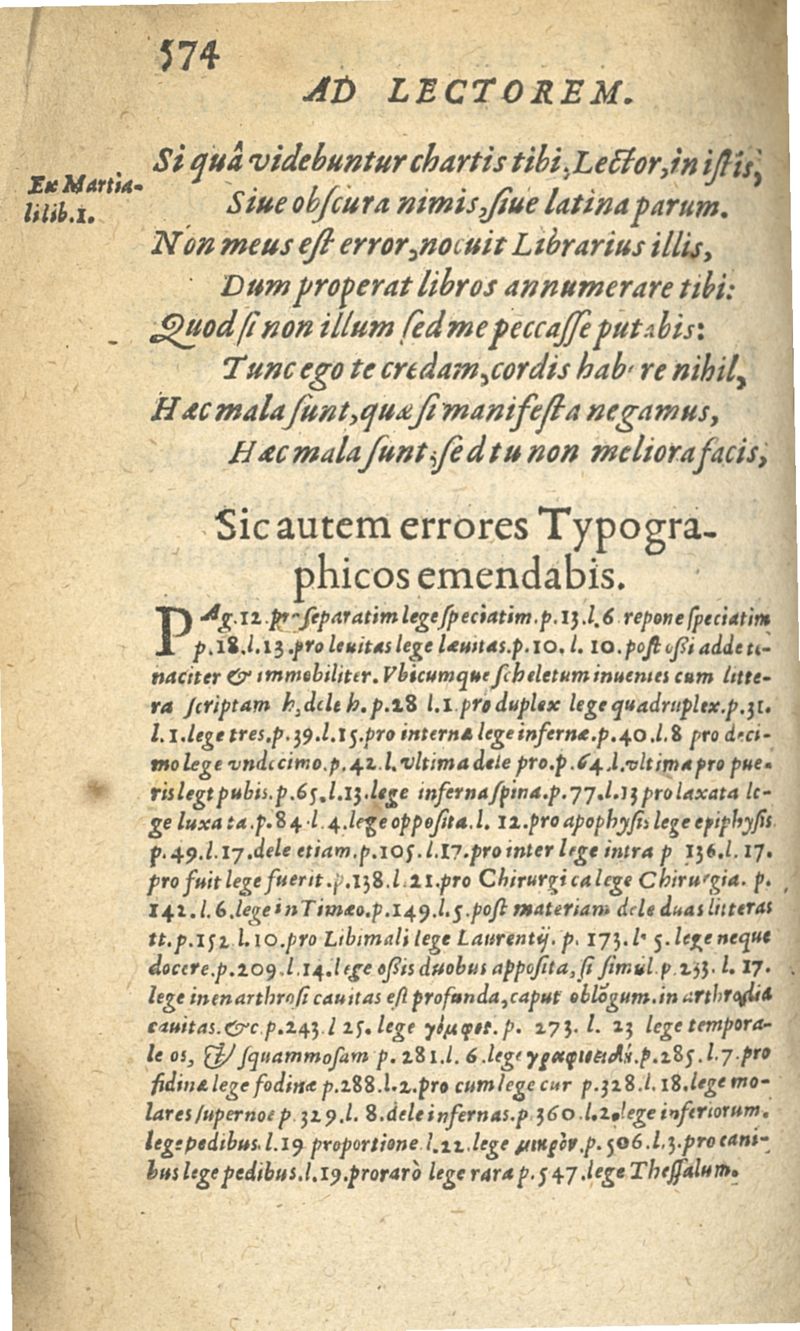 574
AD LECTOREM.
Ex Martia-
li lib. 1.
Si quâ videbuntur chartis tibi, Lector, in istis,
Siue obscura nimis, siue latina parum.
Non meus est error, nocuit Librarius illis,
Dum properat libros annumerare tibi:
Quod si non illum sed me peccasse putabis:
Tunc ego te credam, cordis habere nihil,
Hæc mala sunt, quæ si manifesta negamus,
Hæc mala sunt; sed tu non meliora facis,
Sic autem errores Typogra-
phicos emendabis.
PAg. 12. pro separatim lege speciatim. p. 13. l. 6 repone speciatim
p. 18. l. 13. pro leuitas lege læuitas. p. 10. l. 10. post ossi adde te-
naciter & immobiliter. Vbicumque scheletum inuenies cum litte-
ra scriptam h, dele h. p. 28 l. 1. pro duplex lege quadruplex. p. 31.
l. 1. lege tres. p. 39. l. 15. pro interna lege infernæ. p. 40. l. 8 pro deci-
mo lege vndecimo. p. 42. l. vltima dele pro. p. 64. l. vltima pro pue-
ris legt pubis. p. 65. l. 13. lege inferna spina. p. 77. l. 13 pro laxata le-
ge luxata. p. 84. l. 4. lege opposita. l. 12. pro apophysis lege epiphysis
p. 49. l. 17. dele etiam. p. 105. l. 17. pro inter lege intra p 136. l. 17.
pro fuit lege fuerit. p. 138. l. 21. pro Chirurgica lege Chirurgia. p.
142. l. 6. lege in Timæo. p. 149. l. 5. post materiam dele duas litteras
tt. p. 152 l. 10. pro Libimali lege Laurentij. p. 173. l. 5. lege neque
docere. p. 209. l. 14. lege ossis duobus apposita, si simul. p. 233. l. 17.
lege in enarthrosi cauitas est profunda, caput oblõgum. in arthrodia
cauitas. &c. p. 243 l 25. lege γόμφος. p. 273. l. 23 lege tempora-
le os, & squammosam p. 281. l. 6. lege γραφιοειδὴ. p. 285. l. 7. pro
fidinæ lege fodinæ p. 288. l. 2. pro cum lege cur p. 328. l. 18. lege mo-
lares supernoe p. 329. l. 8. dele infernas. p 360. l. 2. lege inferiorum.
lege pedibus. l. 19 proportione. l. 22. lege μικρὸν. p. 506. l. 3. pro cani-
bus lege pedibus. l. 19. pro rarò lege rara p. 547. lege Thessalum.